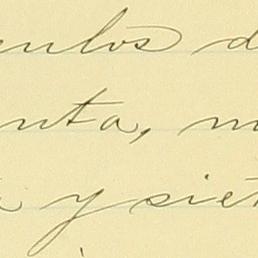 nulos d
nta, m
a y siet